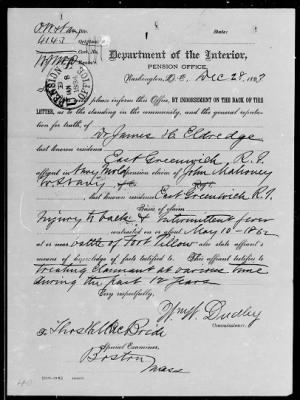 State:
4143
Department of the Interior,
PENSION OFFICE,
Washington, D.C., Dec 28, 1883
please inform this Office, BY INDORSEMENT ON THE BACK OF THIS
LETTER, as to the standing in the community, and the general reputation
for truth, of
Dr James H Eldredge
last known residence
East Greenwich, R.I.
affiant in Navy Invalid pension claim of John Mahoney
U.S. Navy
last known residence East Greenwich R.I.
Basis of claim
Injury to back & Intermittent fever
contracted on or about May 10th 1862
at or near battle of Fort Pillow also state affiant's
means of knowledge of facts testified to. This affiant testified to
treating claimant at various times
during the past 12 years
Very respectfully,
Wm W. Dudley
Commissioner.
Special Examiner,
Boston
Mass